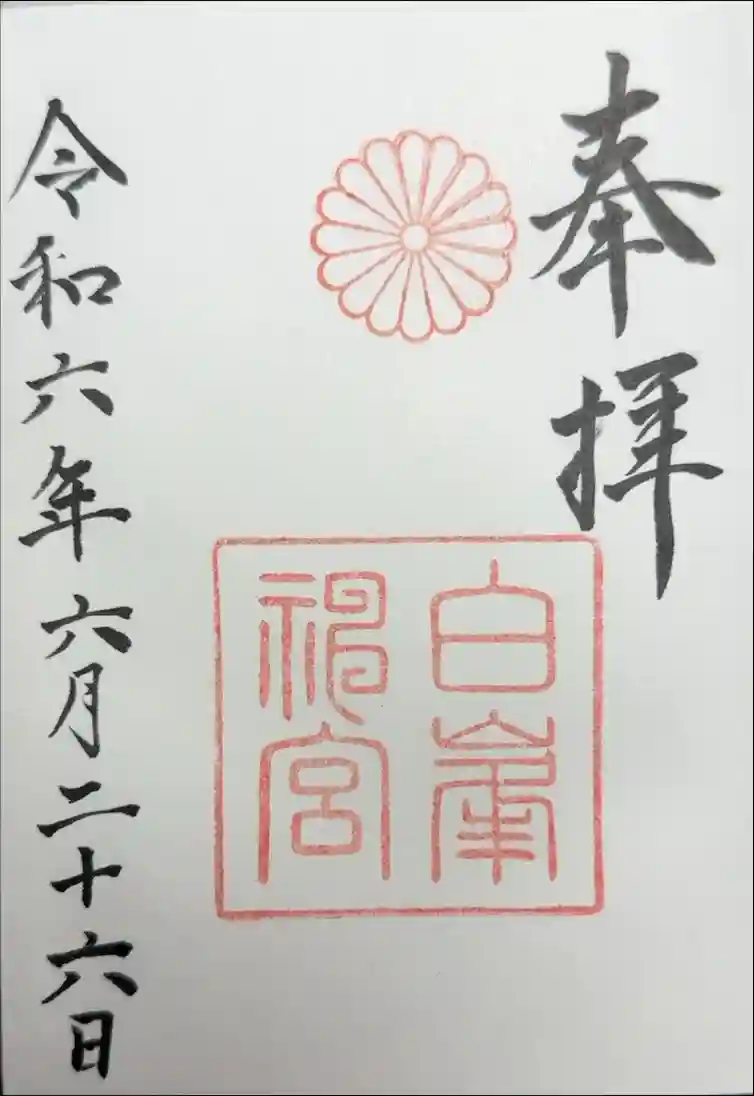 奉拝
白峯
神宮
令和六年六月二十六日